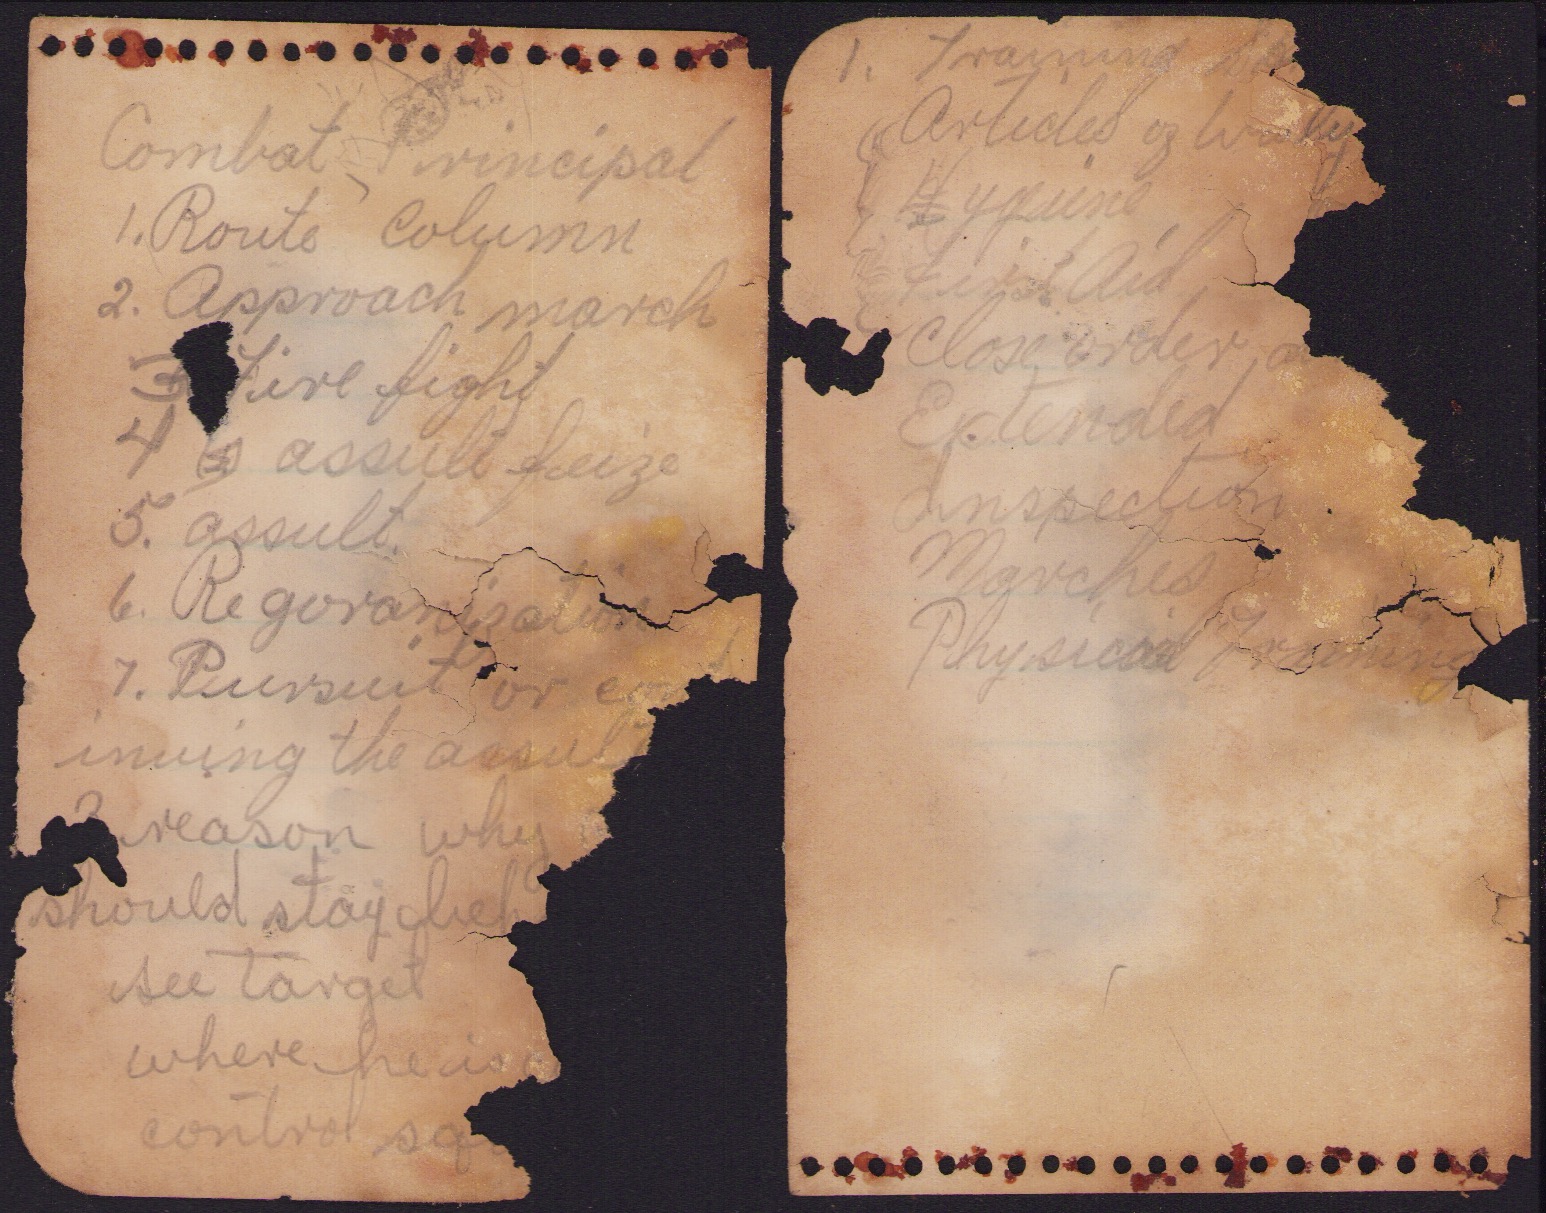 Combat Principal
1. Route column
2. Approach march
3 Fire fight
4 assult
5. assult.
6. Regoranization
7. Pursuit or
inuing the assult
reason why
should stay beh
see target
where he is
control sq
1. Training
Articles of
Hygiene
First Aid
Close order,
Extended
Inspection
Marches
Physical Training